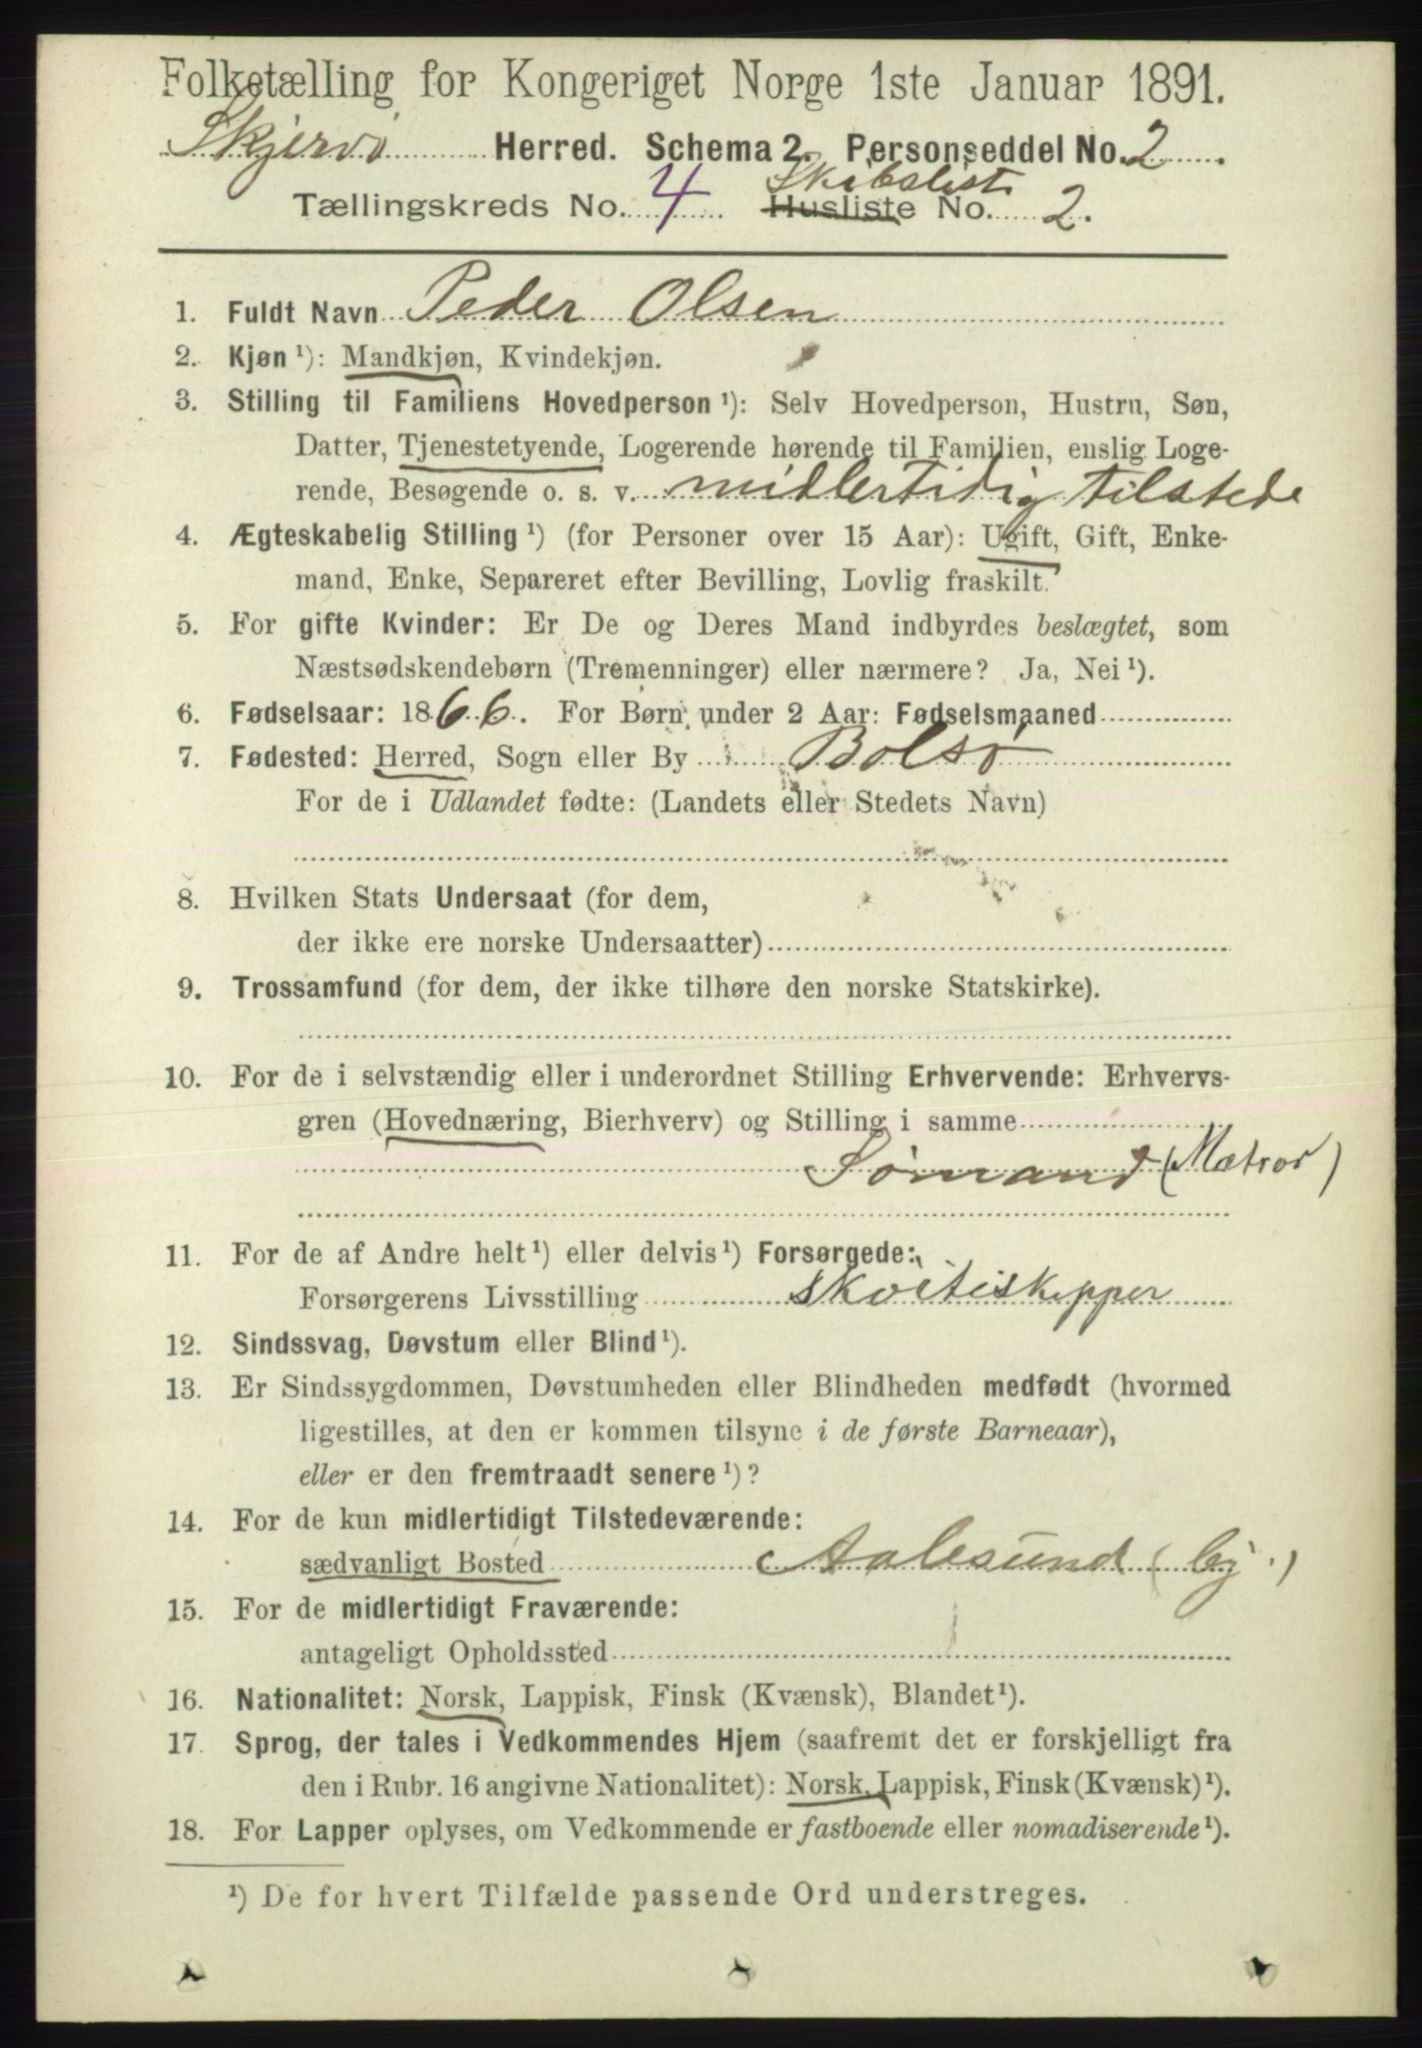 Folketælling for Kongeriget Norge 1ste Januar 1891.
Skjervø Herred. Schema 2. Personseddel No. 2.
Tællingskreds No. 4 Husliste Skibsliste No. 2.
1. Fuldt Navn Peder Olsen
2. Kjøn ¹): Mandkjøn, Kvindekjøn.
3. Stilling til Familiens Hovedperson ¹): Selv Hovedperson, Hustru, Søn,
Datter, Tjenestetyende, Logerende hørende til Familien, enslig Loge-
rende, Besøgende o. s. v. midlertidig tilstede
4. Ægteskabelig Stilling ¹) (for Personer over 15 Aar): Ugift, Gift, Enke-
mand, Enke, Separeret efter Bevilling, Lovlig fraskilt.
5. For gifte Kvinder: Er De og Deres Mand indbyrdes beslægtet, som
Næstsødskendebørn (Tremenninger) eller nærmere? Ja, Nei ¹).
6. Fødselsaar: 1866. For Børn under 2 Aar: Fødselsmaaned
7. Fødested: Herred, Sogn eller By Bolsø
For de i Udlandet fødte: (Landets eller Stedets Navn)
8. Hvilken Stats Undersaat (for dem,
der ikke ere norske Undersaatter)
9. Trossamfund (for dem, der ikke tilhøre den norske Statskirke).
10. For de i selvstændig eller i underordnet Stilling Erhvervende: Erhvervs-
gren (Hovednæring, Bierhverv) og Stilling i samme
Sømand (Matros)
11. For de af Andre helt ¹) eller delvis ¹) Forsørgede:
Forsørgerens Livsstilling
12. Sindssvag, Døvstum eller Blind ¹).
13. Er Sindssygdommen, Døvstumheden eller Blindheden medfødt (hvormed
ligestilles, at den er kommen tilsyne i de første Barneaar),
eller er den fremtraadt senere ¹)?
14. For de kun midlertidigt Tilstedeværende:
sædvanligt Bosted Aalesund (by.)
15. For de midlertidigt Fraværende:
antageligt Opholdssted
16. Nationalitet: Norsk, Lappisk, Finsk (Kvænsk), Blandet ¹).
17. Sprog, der tales i Vedkommendes Hjem (saafremt det er forskjelligt fra
den i Rubr. 16 angivne Nationalitet): Norsk, Lappisk, Finsk (Kvænsk) ¹).
18. For Lapper oplyses, om Vedkommende er fastboende eller nomadiserende ¹).
¹) De for hvert Tilfælde passende Ord understreges.